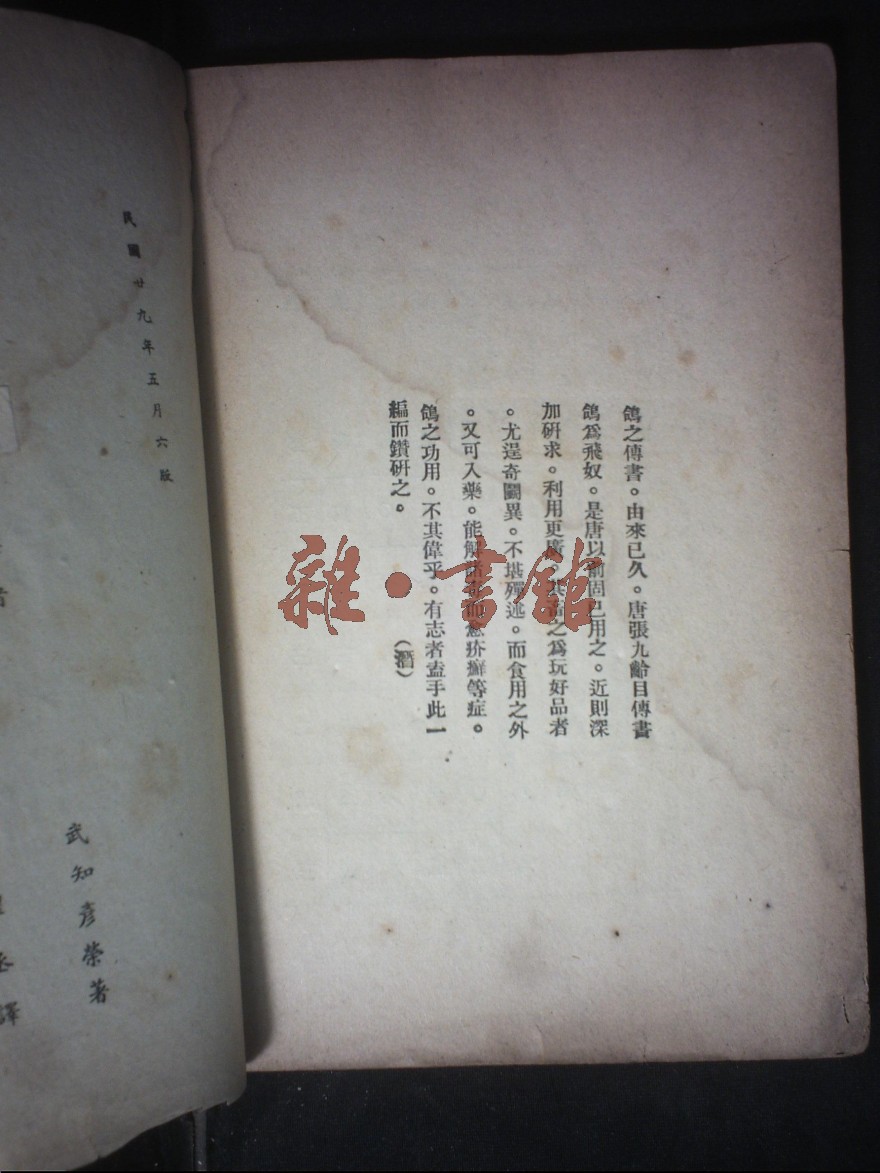 鴿之傳書。由來已久。唐張九齡目傳書
鴿爲飛奴。是唐以前固已用之。近則深
加硏求。利用更廣。其畜之爲玩好品者
。尤逞奇鬭異。不堪殫述。而食用之外
。又可入藥。能解諸毒而愈疥癬等症。
鴿之功用。不其偉乎。有志者盍手此一
編而鑽硏之。
（潛）
民國廿九年五月六版
武知彥榮著
譯
雜·書館